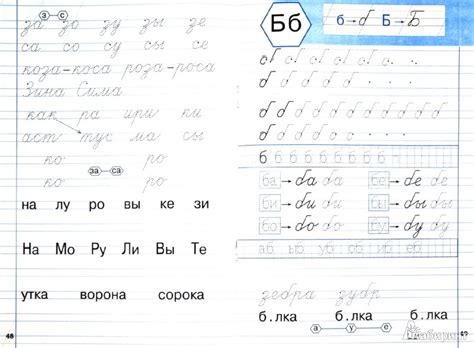 з с
за зо зу зы зе
са со су сы се
коза-коса роза-роса
Зина Сима
как ра ири ки
аст тус ма сы
ко ро
за са
ко ро
на лу ро вы ке зи
На Мо Ру Ли Вы Те
утка ворона сорока
48
Бб
б → б Б → Б
б б б б б б б б б б
ба → ба ба бе → бе бе
би → би би бы → бы бы
бо → бо бо бу → бу бу
аб уб об иб еб
зебра зубр
б.лка б.лка б.лка
а у е
Лабиринт